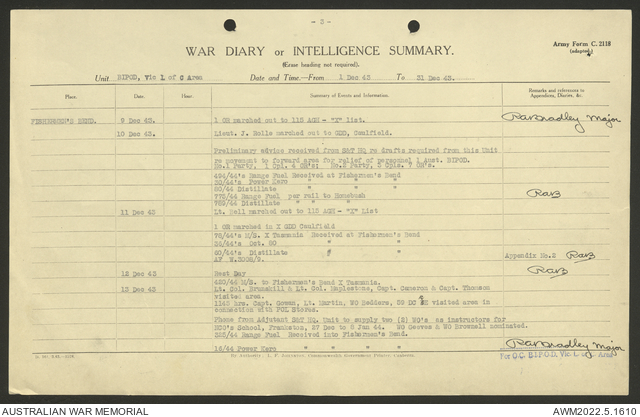 - 3 -
WAR DIARY or INTELLIGENCE SUMMARY.
(Erase heading not required).
Army Form C. 2118
(adapted)
Unit BIPOD, Vic L of C Area Date and Time.—From 1 Dec 43 To 31 Dec 43.
Place. Date. Hour. Summary of Events and Information. Remarks and references to Appendices, Diaries, &c.
FISHERMEN'S BEND. 9 Dec 43. 1 OR marched out to 115 AGH - "X" list. RavBradley Major
10 Dec 43. Lieut. J. Rolls marched out to GDD, Caulfield.
Preliminary advice received from S&T HQ re drafts required from this Unit
re movement to forward area for relief of personnel 1 Aust. BIPOD.
No.1 Party, 1 Cpl. 4 OR's: No.2 Party, 5 Cpls. 7 OR's.
494/44's Range Fuel Received at Fishermen's Bend
30/44's Power Kero " " "
80/44 Distillate " " "
778/44 Range Fuel per rail to Homebush RavB
789/44 Distillate " " " "
11 Dec 43 Lt. Bell marched out to 115 AGH - "X" List
1 OR marched in X GDD Caulfield
78/44's M/S. X Tasmania Received at Fishermen's Bend
34/44's Oct. 80 " " "
60/44's Distillate " " " Appendix No.2 RavB
12 Dec 43 Rest Day RavB
420/44 M/S. to Fishermen's Bend X Tasmania.
13 Dec 43 Lt. Col. Brunskill & Lt. Col. Maplestone, Capt. Cameron & Capt. Thomson
visited area.
1145 hrs. Capt. Gowan, Lt. Martin, WO Hedders, US DC visited area in
connection with POL Stores.
Phone from Adjutant S&T HQ. Unit to supply two (2) WO's as instructors for
NCO's School, Frankston, 27 Dec to 8 Jan 44. WO Geeves & WO Brownell nominated.
323/44 Range Fuel Received into Fishermen's Bend.
16/44 Power Kero " " " " RavBradley Major
For O.C. B.I.P.O.D. Vic. L. of C. Area
AUSTRALIAN WAR MEMORIAL
AWM2022.5.1610